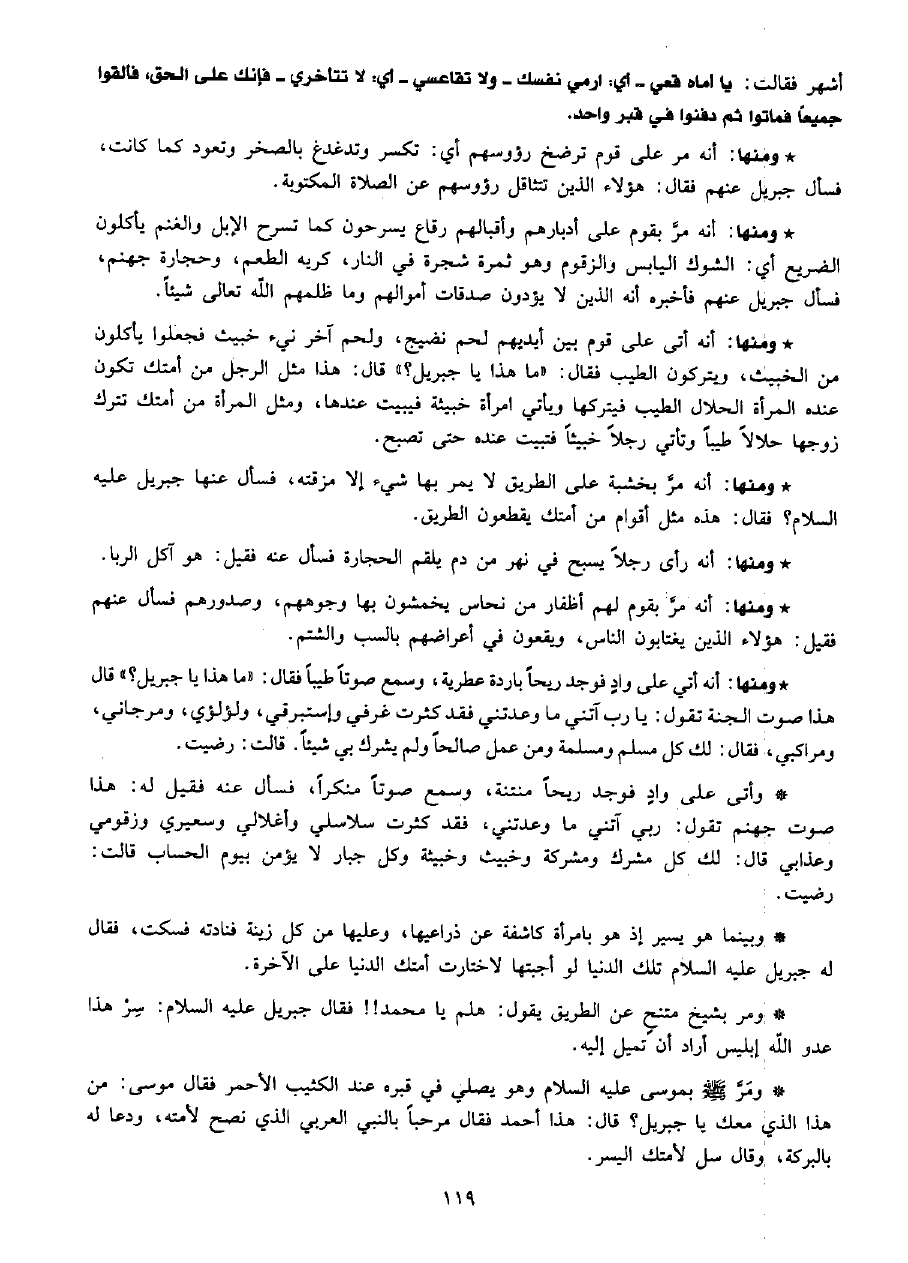 أشهر فقالت: يا اماه قعي ـ أي: ارمي نفسك ـ ولا تقاعسي ـ أي: لا تتأخري ـ فإنك على الحق، فألقوا
جميعاً فماتوا ثم دفنوا في قبر واحد.
★ ومنها: أنه مر على قوم ترضخ رؤوسهم أي: تكسر وتدغدغ بالصخر وتعود كما كانت،
فسأل جبريل عنهم فقال: هؤلاء الذين تتثاقل رؤوسهم عن الصلاة المكتوبة.
★ ومنها: أنه مرَّ بقوم على أدبارهم وأقبالهم رقاع يسرحون كما تسرح الإبل والغنم يأكلون
الضريع أي: الشوك اليابس والزقوم وهو ثمرة شجرة في النار، كريه الطعم، وحجارة جهنم،
فسأل جبريل عنهم فأخبره أنه الذين لا يؤدون صدقات أموالهم وما ظلمهم الله تعالى شيئاً.
★ ومنها: أنه أتى على قوم بين أيديهم لحم نضيج، ولحم آخر نيء خبيث فجعلوا يأكلون
من الخبيث، ويتركون الطيب فقال: «ما هذا يا جبريل؟» قال: هذا مثل الرجل من أمتك تكون
عنده المرأة الحلال الطيب فيتركها ويأتي امرأة خبيثة فيبيت عندها، ومثل المرأة من أمتك تترك
زوجها حلالاً طيباً وتأتي رجلاً خبيثاً فتبيت عنده حتى تصبح.
★ ومنها: أنه مرَّ بخشبة على الطريق لا يمر بها شيء إلا مزقته، فسأل عنها جبريل عليه
السلام؟ فقال: هذه مثل أقوام من أمتك يقطعون الطريق.
★ ومنها: أنه رأى رجلاً يسبح في نهر من دم يلقم الحجارة فسأل عنه فقيل: هو آكل الربا.
★ ومنها: أنه مرَّ بقوم لهم أظفار من نحاس يخمشون بها وجوههم، وصدورهم فسأل عنهم
فقيل: هؤلاء الذين يغتابون الناس، ويقعون في أعراضهم بالسب والشتم.
★ ومنها: أنه أتي على وادٍ فوجد ريحاً باردة عطرية، وسمع صوتاً طيباً فقال: «ما هذا يا جبريل؟» قال
هذا صوت الجنة تقول: يا رب آتني ما وعدتني فقد كثرت غرفي وإستبرقي، ولؤلؤي، ومرجاني،
ومراكبي، فقال: لك كل مسلم ومسلمة ومن عمل صالحاً ولم يشرك بي شيئاً. قالت: رضيت.
* وأتى على وادٍ فوجد ريحاً منتنة، وسمع صوتاً منكراً، فسأل عنه فقيل له: هذا
صوت جهنم تقول: ربي آتني ما وعدتني، فقد كثرت سلاسلي وأغلالي وسعيري وزقومي
وعذابي قال: لك كل مشرك ومشركة وخبيث وخبيثة وكل جبار لا يؤمن بيوم الحساب قالت:
رضيت.
* وبينما هو يسير إذ هو بامرأة كاشفة عن ذراعيها، وعليها من كل زينة فنادته فسكت، فقال
له جبريل عليه السلام تلك الدنيا لو أجبتها لاختارت أمتك الدنيا على الآخرة.
* ومر بشيخ متنحٍ عن الطريق يقول: هلم يا محمد!! فقال جبريل عليه السلام: سِرْ هذا
عدو الله إبليس أراد أن تميل إليه.
* ومَرَّ ﷺ بموسى عليه السلام وهو يصلي في قبره عند الكثيب الأحمر فقال موسى: من
هذا الذي معك يا جبريل؟ قال: هذا أحمد فقال مرحباً بالنبي العربي الذي نصح لأمته، ودعا له
بالبركة، وقال سل لأمتك اليسر.
١١٩